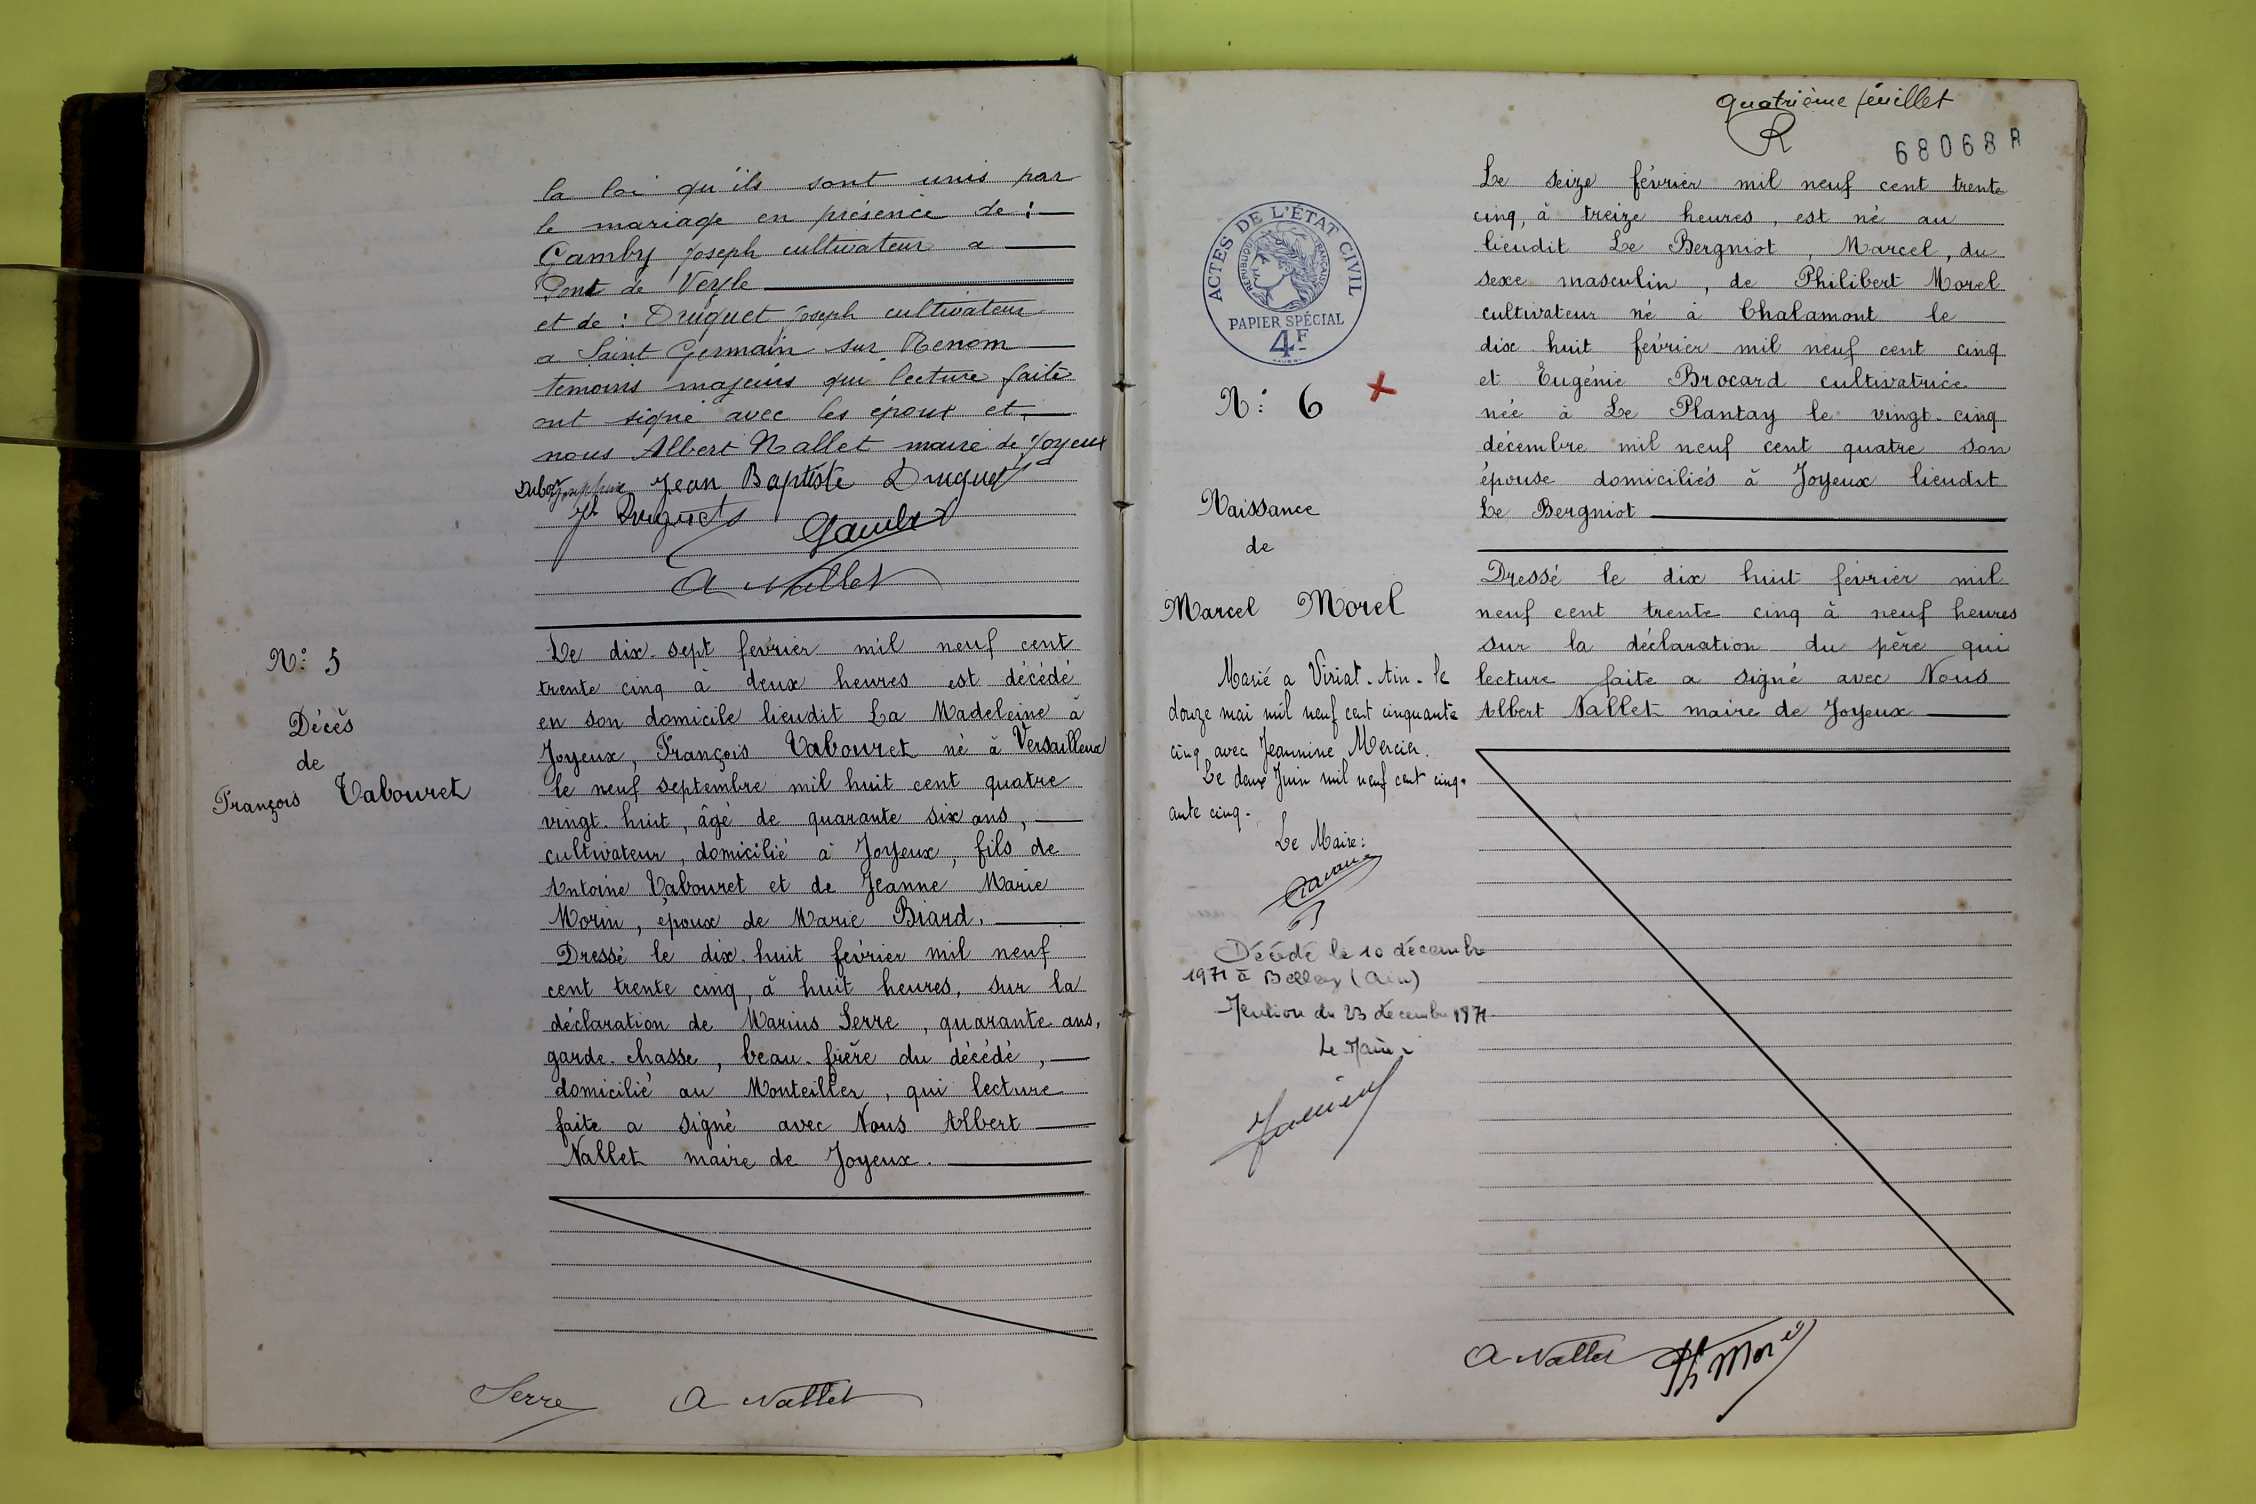 la loi qu'ils sont unis par
le mariage en présence de :
Gamby Joseph cultivateur a
Pont de Veyle
et de : Druguet Joseph cultivateur
a Saint Germain sur Renom
temoins majeurs qui lecture faite
ont signé avec les époux et
nous Albert Nallet maire de Joyeux
Josephine Jean Baptiste Druguet
Jh Druguet
Gamby
A Nallet
N° 5
Décès
de
François Tabouret
Le dix-sept février mil neuf cent
trente cinq à deux heures est décédé
en son domicile lieudit La Madeleine à
Joyeux, François Tabouret né à Versailleux
le neuf septembre mil huit cent quatre
vingt-huit, âgé de quarante six ans,
cultivateur, domicilié à Joyeux, fils de
Antoine Tabouret et de Jeanne Marie
Morin, époux de Marie Biard.
Dressé le dix-huit février mil neuf
cent trente cinq, à huit heures, sur la
déclaration de Marius Serre, quarante ans,
garde-chasse, beau-frère du décédé,
domicilié au Montellier, qui lecture
faite a signé avec Nous Albert
Nallet maire de Joyeux.
Serre A Nallet
quatrième feuillet
R
68068 A
ACTES DE L'ÉTAT CIVIL
RÉPUBLIQUE FRANÇAISE
PAPIER SPÉCIAL
4F
N° 6
Naissance
de
Marcel Morel
Marié a Viriat-Ain-le
douze mai mil neuf cent cinquante
cinq avec Jeannine Mercier.
Le deux Juin mil neuf cent cinqu-
ante cinq.
Le Maire :
Décédé le 10 décembre
1971 à Belley (Ain)
Mention du 23 décembre 1971
Le Maire
Le seize février mil neuf cent trente
cinq, à treize heures, est né au
lieudit Le Bergniot, Marcel, du
sexe masculin, de Philibert Morel
cultivateur né à Chalamont le
dix huit février mil neuf cent cinq
et Eugénie Brocard cultivatrice
née à Le Plantay le vingt-cinq
décembre mil neuf cent quatre son
épouse domiciliés à Joyeux lieudit
Le Bergniot
Dressé le dix huit février mil
neuf cent trente cinq à neuf heures
sur la déclaration du père qui
lecture faite a signé avec Nous
Albert Nallet maire de Joyeux
A Nallet Ph Morel